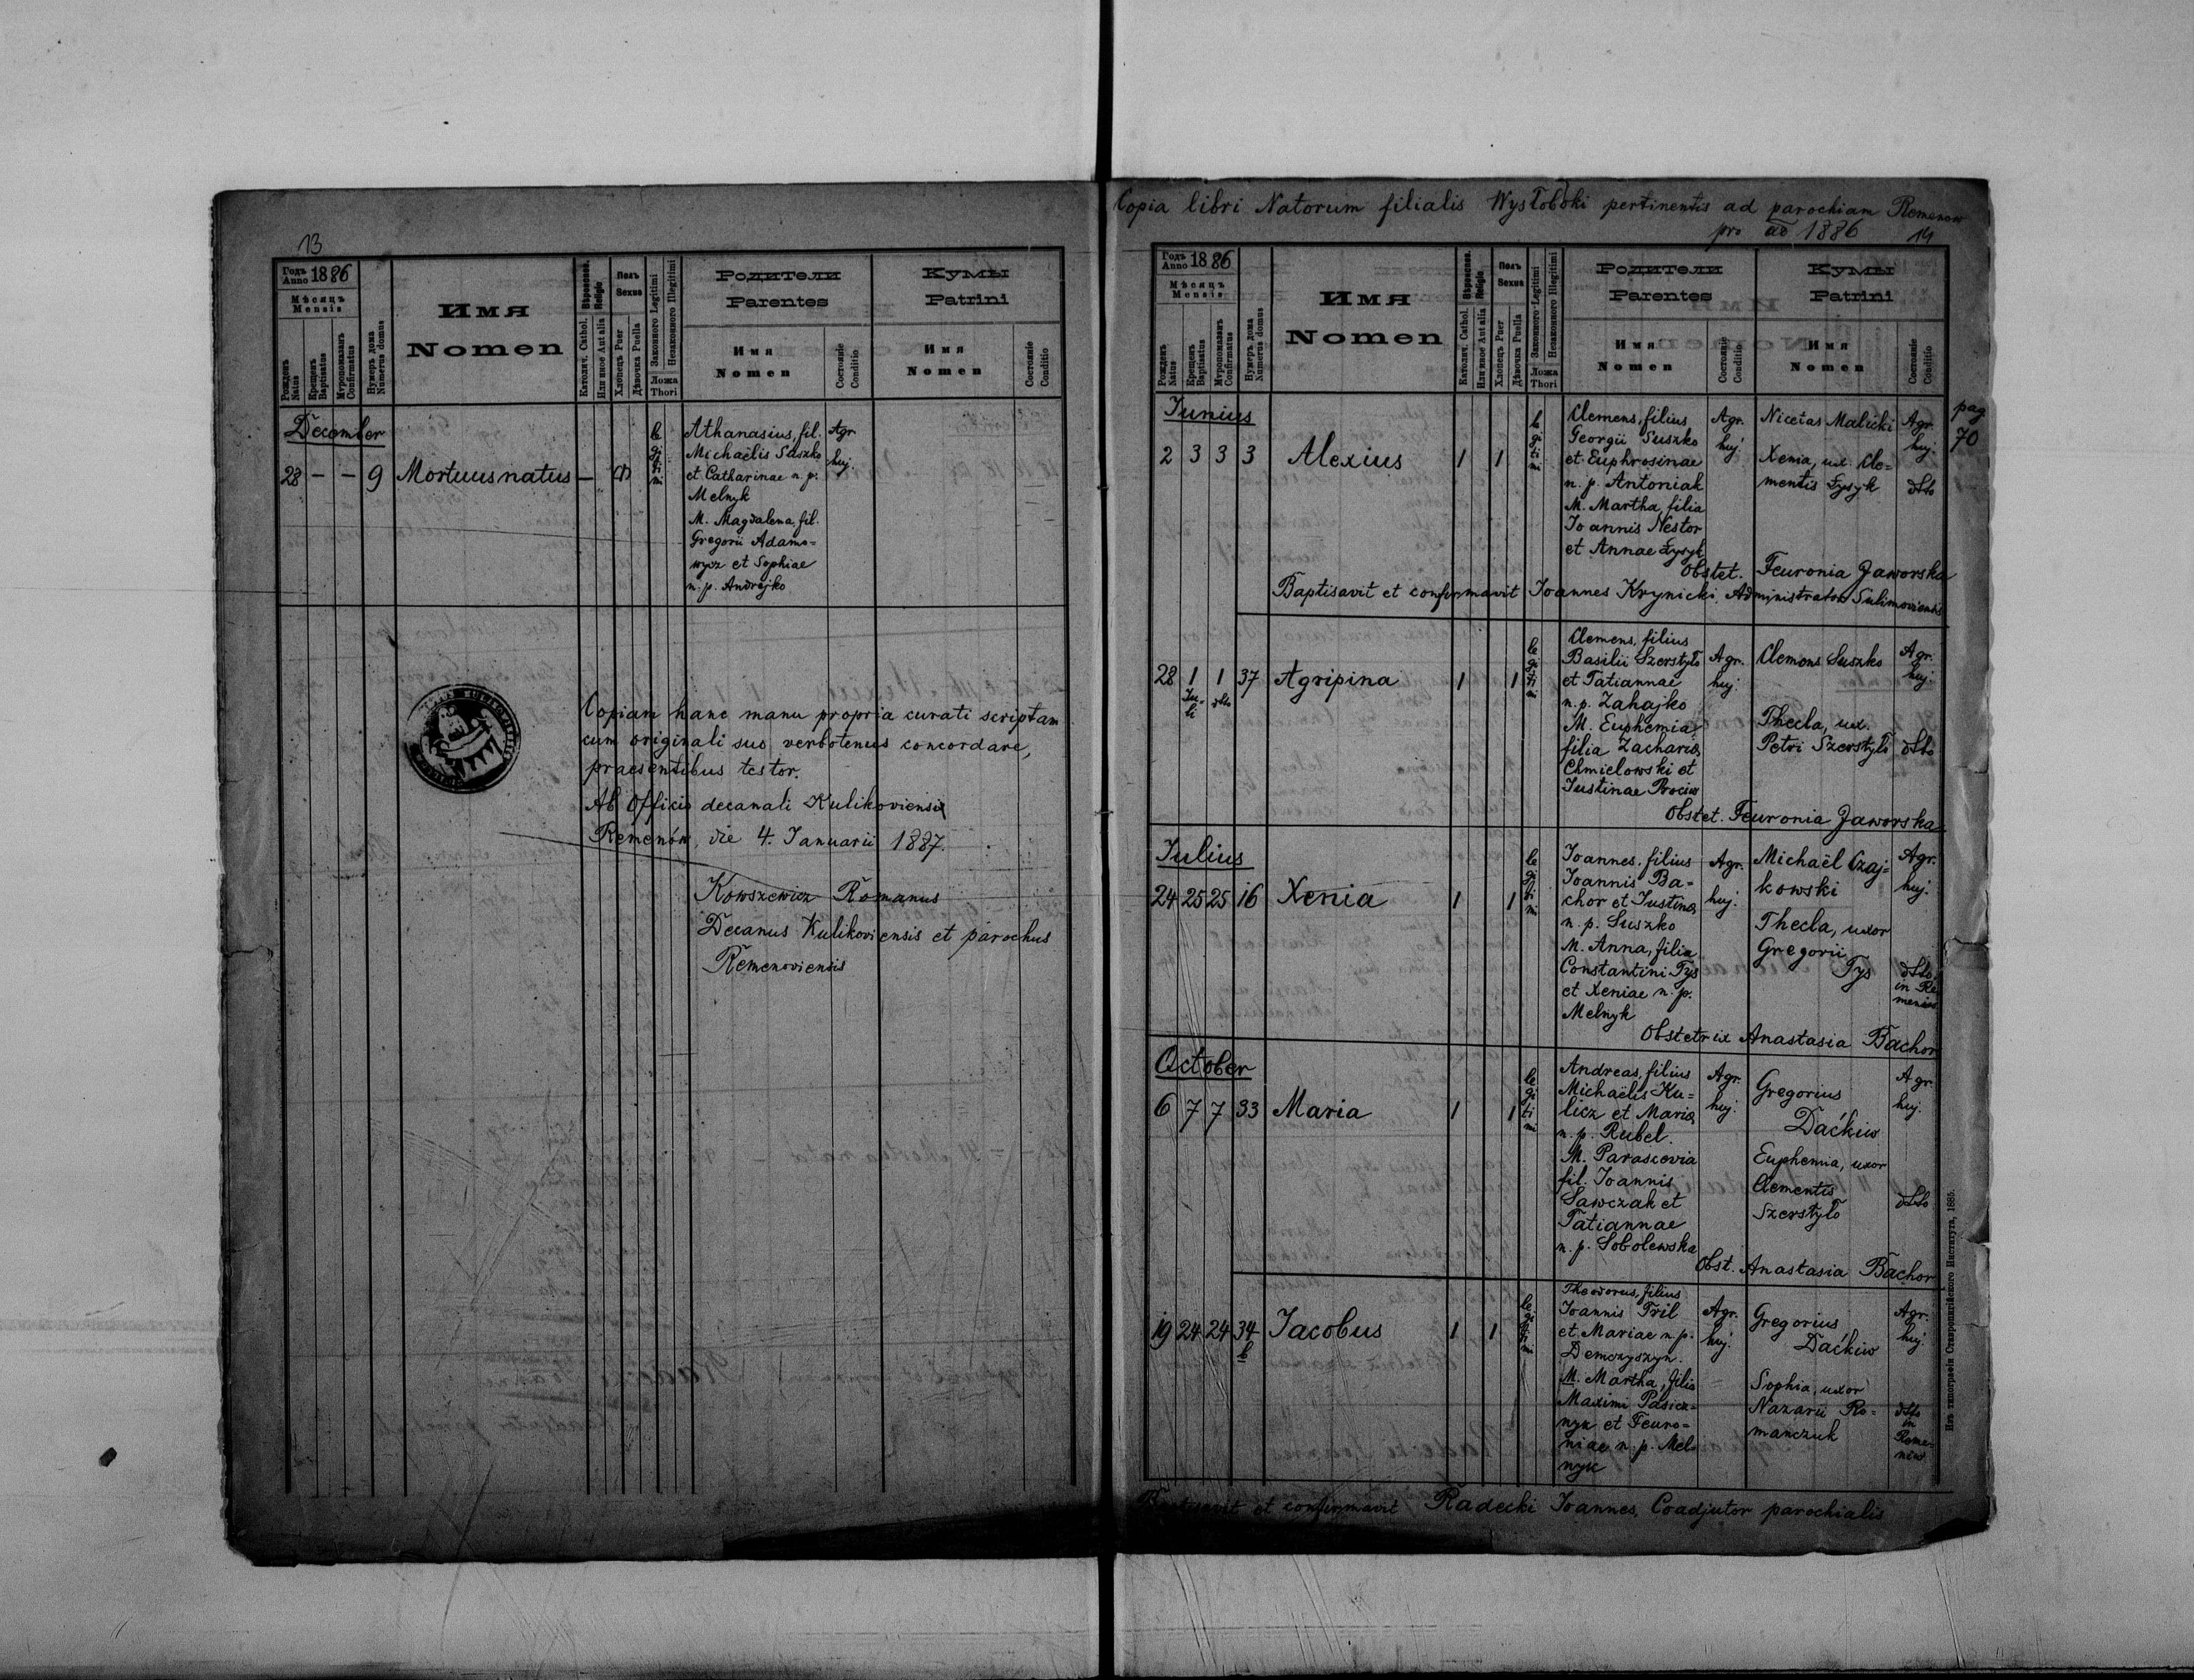 13
Годъ Anno 1886
Мѣсяцъ
Mensis
Рожденъ Natus
Крещенъ Baptisatus
Мѵропомазанъ Confirmatus
Нумеръ дома Numerus domus
Имя
Nomen
Вѣроиспов. Religio
Католич. Cathol.
Или иное Aut alia
Полъ Sexus
Хлопецъ Puer
Дѣвочка Puella
Законного Legitimi
Незаконного Illegitimi
Ложа
Thori
Родители
Parentes
Имя
Nomen
Состояніе
Conditio
Кумы
Patrini
Имя
Nomen
Состояніе
Conditio
December
28 — — 9 Mortuus natus — (1)
le
gi
ti
mi
Athanasius, fil.
Michaëlis Suszko
et Catharinae n. p.
Melnyk
M. Magdalena, fil.
Gregorii Adamo=
wycz et Sophiae
n. p. Andrejko
Agr.
huj.
Copiam hanc manu propria curati scriptam
cum originali suo verbotenus concordare,
praesentibus testor.
Ab Officio decanali Kulikoviensi
Remenów, die 4. Januarii 1887.
Kowszewicz Romanus
Decanus Kulikoviensis et parochus
Remenoviensis
Copia libri Natorum filialis Wysłoboki pertinentis ad parochiam Remenow
pro ao 1886
14
Годъ Anno 1886
Мѣсяцъ
Mensis
Рожденъ Natus
Крещенъ Baptisatus
Мѵропомазанъ Confirmatus
Нумеръ дома Numerus domus
Имя
Nomen
Вѣроиспов. Religio
Католич. Cathol.
Или иное Aut alia
Полъ Sexus
Хлопецъ Puer
Дѣвочка Puella
Законного Legitimi
Незаконного Illegitimi
Ложа
Thori
Родители
Parentes
Имя
Nomen
Состояніе
Conditio
Кумы
Patrini
Имя
Nomen
Состояніе
Conditio
pag
70
Junius
2 3 3 3 Alexius 1 1
le
gi
ti
mi
Clemens, filius
Georgii Suszko
et Euphrosinae
n. p. Antoniak
M. Martha, filia
Joannis Nestor
et Annae Łysyk
Agr.
huj.
Nicetas Malicki
Xenia, ux. Cle=
mentis Łysyk
Agr.
huj.
dtto
Obstet. Feuronia Jaworska
Baptisavit et confirmavit Joannes Krynicki, Administrator Sulimoviensis
28 1 1 37 Agripina 1 1
Ju-
li
dtto
le
gi
ti
mi
Clemens, filius
Basilii Szerstyło
et Tatiannae
n. p. Zahajko
M. Euphemia,
filia Zachariae
Chmielowski et
Justinae Prociw
Agr.
huj.
Clemens Suszko
Thecla, ux.
Petri Szerstyło
Agr.
huj.
dtto
Obstet. Feuronia Jaworska
Julius
24 25 25 16 Xenia 1 1
le
gi
ti
mi
Joannes, filius
Joannis Ba=
chor et Justinae
n. p. Suszko
M. Anna, filia
Constantini Tys
et Xeniae n. p.
Melnyk
Agr.
huj.
Michaël Czaj=
kowski
Thecla, uxor
Gregorii
Tys
Agr.
huj.
dtto
in Re-
menów
Obstetrix Anastasia Bachor
October
6 7 7 33 Maria 1 1
le
gi
ti
mi
Andreas, filius
Michaëlis Ku=
licz et Mariae
n. p. Rubel.
M. Parascevia
fil. Joannis
Sawczak et
Tatiannae
n. p. Sobolewska
Agr.
huj.
Gregorius
Daćkiw
Euphemia, uxor
Clementis
Szerstyło
Agr.
huj.
dtto
Obst. Anastasia Bachor
19 24 24 34 Jacobus 1 1
b
le
gi
ti
mi
Theodorus, filius
Joannis Tril
et Mariae n. p.
Demczyszyn.
M. Martha, filia
Maximi Pasicz=
nyk et Feuro=
niae n. p. Mel=
nyk
Agr.
huj.
Gregorius
Daćkiw
Sophia, uxor
Nazarii Ro=
manczuk
Agr.
huj.
dtto
in
Reme-
nów
Baptisavit et confirmavit Radecki Joannes, Coadjutor parochialis
Изъ типографіи Ставропигійского Института, 1885.